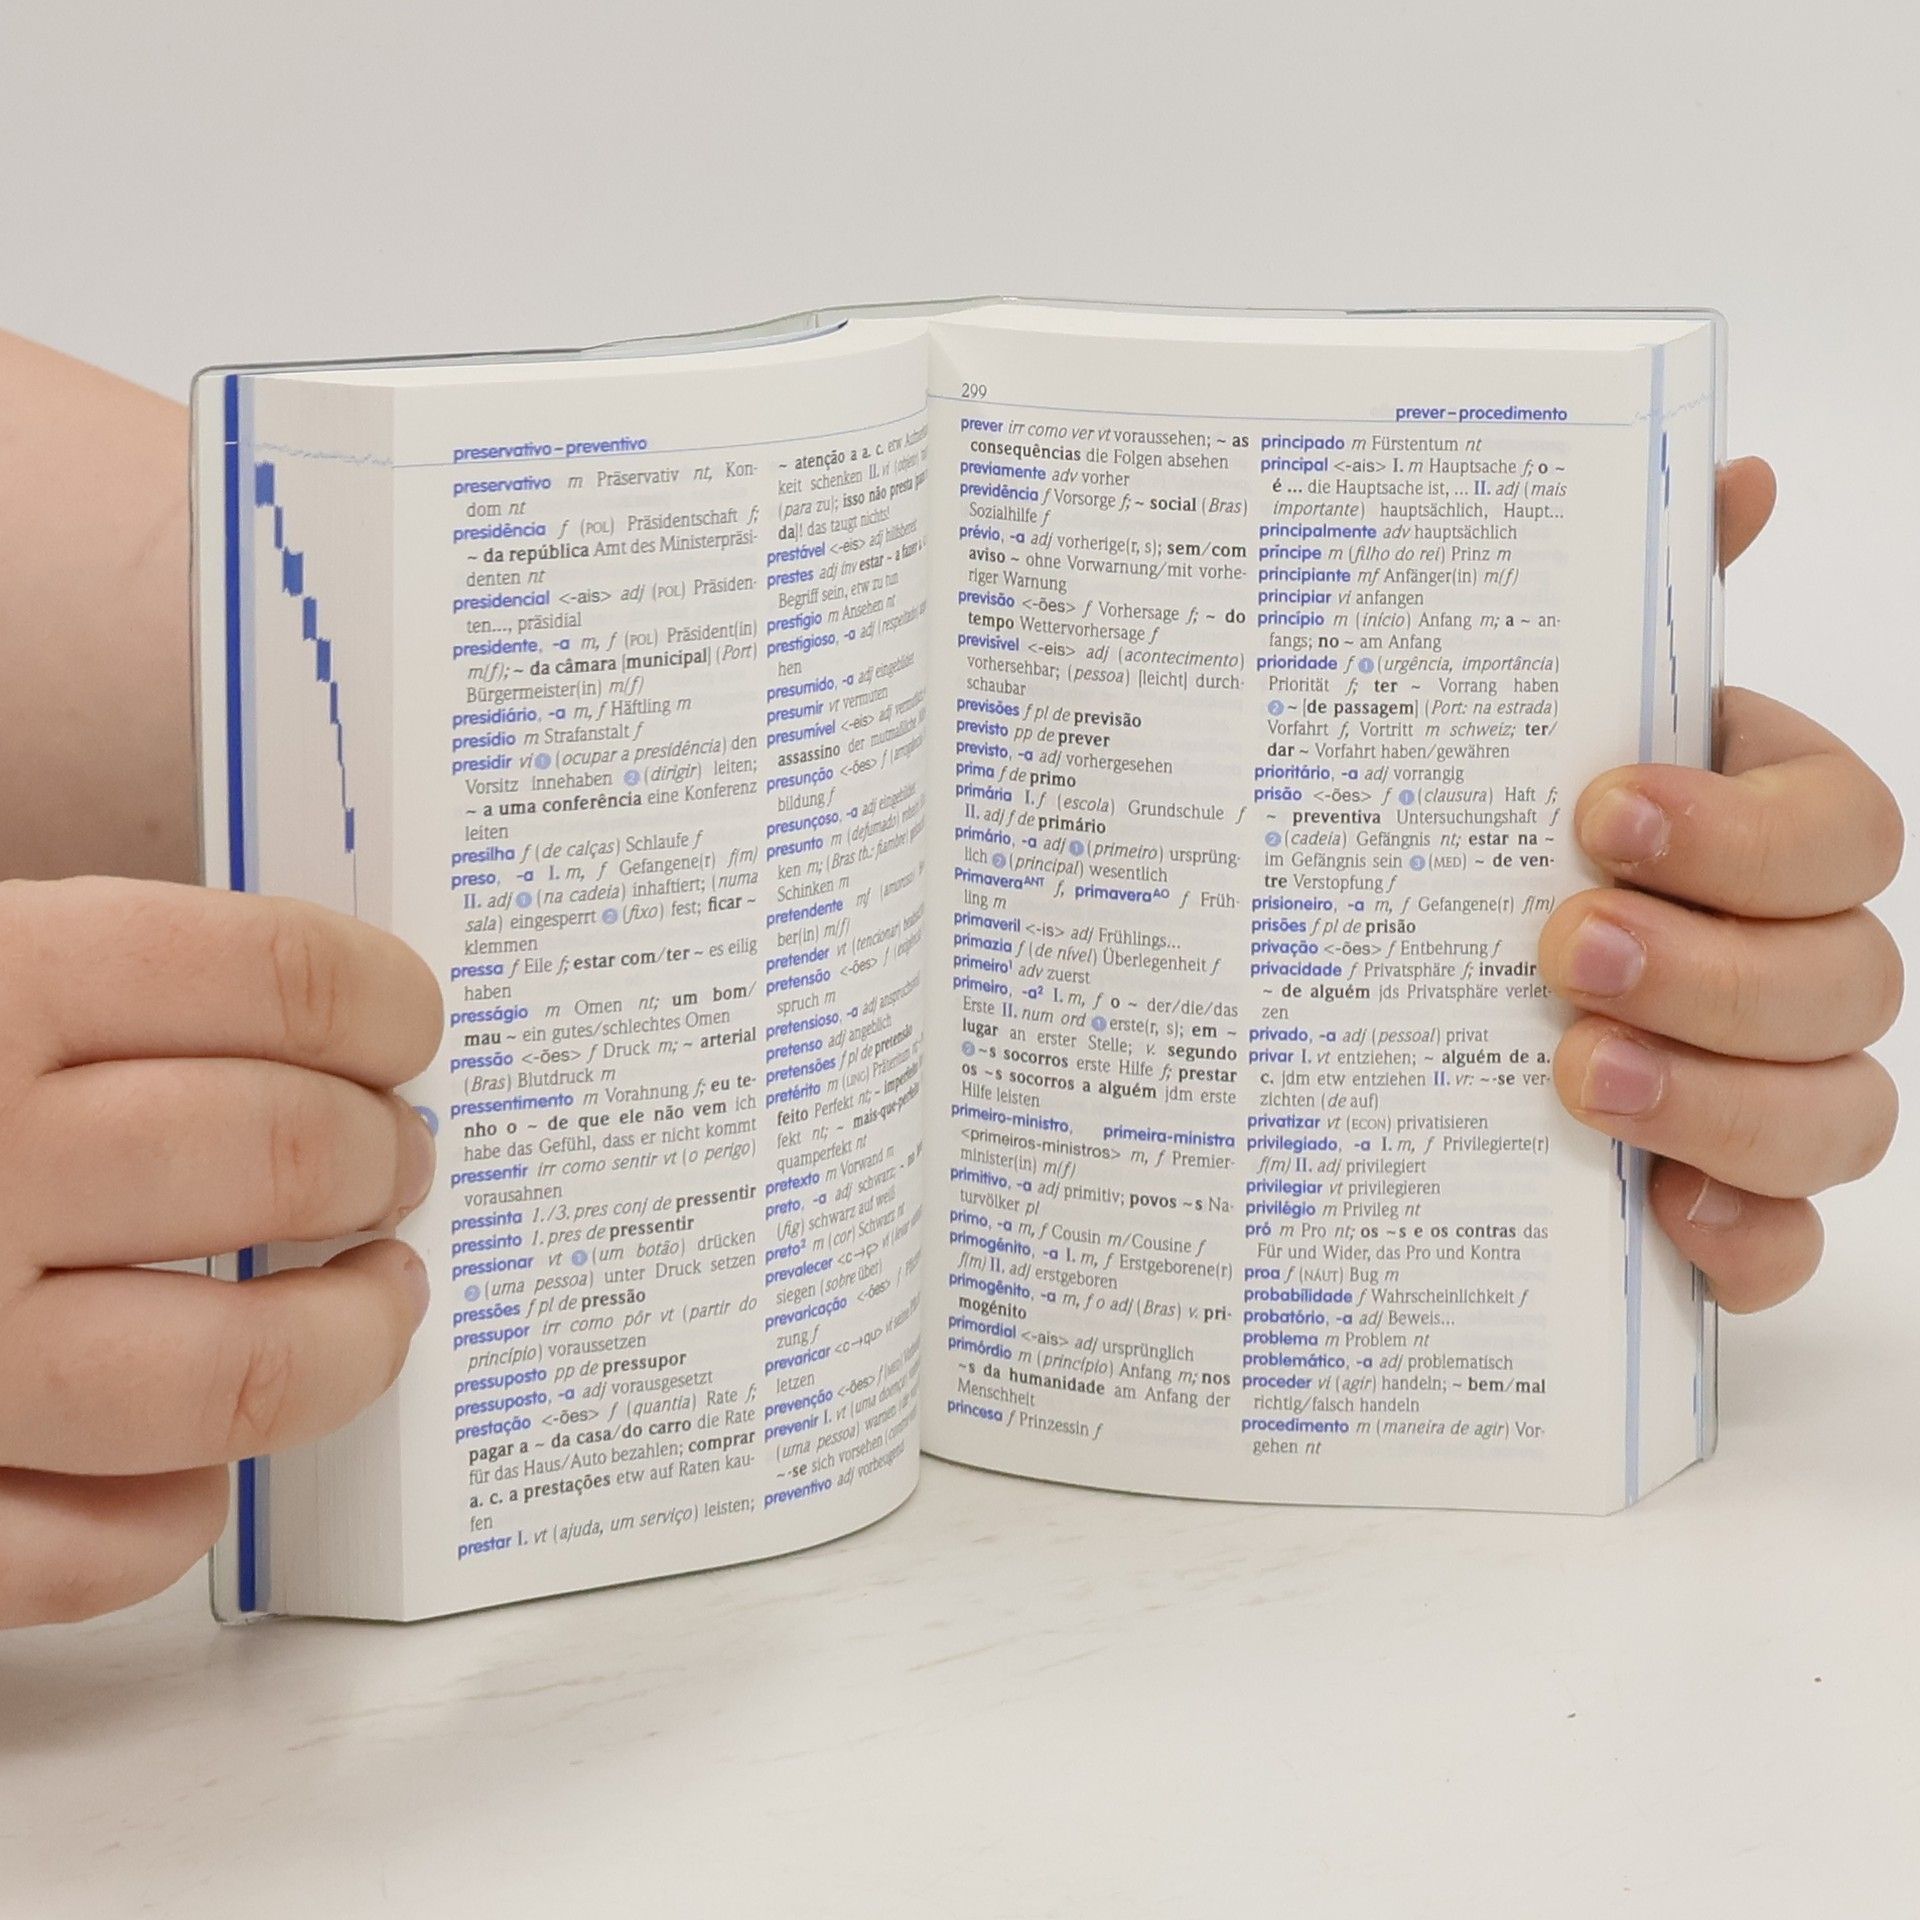 preservativo–preventivo
preservativo m Präservativ nt, Kon-
dom nt
presidência f (POL) Präsidentschaft f;
~ da república Amt des Ministerpräsi-
denten nt
presidencial <-ais> adj (POL) Präsiden-
ten..., präsidial
presidente, -a m, f (POL) Präsident(in)
m(f); ~ da câmara [municipal] (Port)
Bürgermeister(in) m(f)
presidiário, -a m, f Häftling m
presídio m Strafanstalt f
presidir vi ❶ (ocupar a presidência) den
Vorsitz innehaben ❷ (dirigir) leiten;
~ a uma conferência eine Konferenz
leiten
presilha f (de calças) Schlaufe f
preso, -a I. m, f Gefangene(r) f(m)
II. adj ❶ (na cadeia) inhaftiert; (numa
sala) eingesperrt ❷ (fixo) fest; ficar ~
klemmen
pressa f Eile f; estar com/ter ~ es eilig
haben
presságio m Omen nt; um bom/
mau ~ ein gutes/schlechtes Omen
pressão <-ões> f Druck m; ~ arterial
(Bras) Blutdruck m
pressentimento m Vorahnung f; eu te-
nho o ~ de que ele não vem ich
habe das Gefühl, dass er nicht kommt
pressentir irr como sentir vt (o perigo)
vorausahnen
pressinta 1./3. pres conj de pressentir
pressinto 1. pres de pressentir
pressionar vt ❶ (um botão) drücken
❷ (uma pessoa) unter Druck setzen
pressões f pl de pressão
pressupor irr como pôr vt (partir do
princípio) voraussetzen
pressuposto pp de pressupor
pressuposto, -a adj vorausgesetzt
prestação <-ões> f (quantia) Rate f;
pagar a ~ da casa/do carro die Rate
für das Haus/Auto bezahlen; comprar
a. c. a prestações etw auf Raten kau-
fen
prestar I. vt (ajuda, um serviço) leisten;
~ atenção a a. c. etw
keit schenken II. vi (objeto)
(para zu); isso não presta
da]! das taugt nichts!
prestável <-eis> adj hilfsbereit
prestes adj inv estar ~ a fazer a.
Begriff sein, etw zu tun
prestígio m Ansehen nt
prestigioso, -a adj (respeitado)
hen
presumido, -a adj eingebildet
presumir vt vermuten
presumível <-eis> adj
assassino der mutmaßliche
presunção <-ões> f (arrogância)
bildung f
presunçoso, -a adj eingebildet
presunto m (defumado)
ken m; (Bras tb.: fiambre)
Schinken m
pretendente mf (amoroso)
ber(in) m(f)
pretender vt (tencionar)
pretensão <-ões> f (exigência)
spruch m
pretensioso, -a adj anspruchsvoll
pretenso adj angeblich
pretensões f pl de pretensão
pretérito m (LING) Präteritum nt;
feito Perfekt nt; ~ imperfeito
fekt nt; ~ mais-que-perfeito
quamperfekt nt
pretexto m Vorwand m
preto, -a adj schwarz;
(fig) schwarz auf weiß
preto² m (cor) Schwarz nt
prevalecer <c→ç> vi
siegen (sobre über)
prevaricação <-ões> f
zung f
prevaricar <c→qu> vi
letzen
prevenção <-ões> f
prevenir I. vt (uma doença)
(uma pessoa) warnen
~-se sich vorsehen
preventivo adj vorbeugend
299
prever–procedimento
prever irr como ver vt voraussehen; ~ as
consequências die Folgen absehen
previamente adv vorher
previdência f Vorsorge f; ~ social (Bras)
Sozialhilfe f
prévio, -a adj vorherige(r, s); sem/com
aviso ~ ohne Vorwarnung/mit vorhe-
riger Warnung
previsão <-ões> f Vorhersage f; ~ do
tempo Wettervorhersage f
previsível <-eis> adj (acontecimento)
vorhersehbar; (pessoa) [leicht] durch-
schaubar
previsões f pl de previsão
previsto pp de prever
previsto, -a adj vorhergesehen
prima f de primo
primária I. f (escola) Grundschule f
II. adj f de primário
primário, -a adj ❶ (primeiro) ursprüng-
lich ❷ (principal) wesentlich
Primavera ANT f, primavera AO f Früh-
ling m
primaveril <-is> adj Frühlings...
primazia f (de nível) Überlegenheit f
primeiro¹ adv zuerst
primeiro, -a² I. m, f o ~ der/die/das
Erste II. num ord ❶ erste(r, s); em ~
lugar an erster Stelle; v. segundo
❷ ~s socorros erste Hilfe f; prestar
os ~s socorros a alguém jdm erste
Hilfe leisten
primeiro-ministro, primeira-ministra
<primeiros-ministros> m, f Premier-
minister(in) m(f)
primitivo, -a adj primitiv; povos ~s Na-
turvölker pl
primo, -a m, f Cousin m/Cousine f
primogénito, -a I. m, f Erstgeborene(r)
f(m) II. adj erstgeboren
primogênito, -a m, f o adj (Bras) v. pri-
mogénito
primordial <-ais> adj ursprünglich
primórdio m (princípio) Anfang m; nos
~s da humanidade am Anfang der
Menschheit
princesa f Prinzessin f
principado m Fürstentum nt
principal <-ais> I. m Hauptsache f; o ~
é ... die Hauptsache ist, ... II. adj (mais
importante) hauptsächlich, Haupt...
principalmente adv hauptsächlich
príncipe m (filho do rei) Prinz m
principiante mf Anfänger(in) m(f)
principiar vi anfangen
princípio m (início) Anfang m; a ~ an-
fangs; no ~ am Anfang
prioridade f ❶ (urgência, importância)
Priorität f; ter ~ Vorrang haben
❷ ~ [de passagem] (Port: na estrada)
Vorfahrt f, Vortritt m schweiz; ter/
dar ~ Vorfahrt haben/gewähren
prioritário, -a adj vorrangig
prisão <-ões> f ❶ (clausura) Haft f;
~ preventiva Untersuchungshaft f
❷ (cadeia) Gefängnis nt; estar na ~
im Gefängnis sein ❸ (MED) ~ de ven-
tre Verstopfung f
prisioneiro, -a m, f Gefangene(r) f(m)
prisões f pl de prisão
privação <-ões> f Entbehrung f
privacidade f Privatsphäre f; invadir
~ de alguém jds Privatsphäre verlet-
zen
privado, -a adj (pessoal) privat
privar I. vt entziehen; ~ alguém de a.
c. jdm etw entziehen II. vr: ~-se ver-
zichten (de auf)
privatizar vt (ECON) privatisieren
privilegiado, -a I. m, f Privilegierte(r)
f(m) II. adj privilegiert
privilegiar vt privilegieren
privilégio m Privileg nt
pró m Pro nt; os ~s e os contras das
Für und Wider, das Pro und Kontra
proa f (NÁUT) Bug m
probabilidade f Wahrscheinlichkeit f
probatório, -a adj Beweis...
problema m Problem nt
problemático, -a adj problematisch
proceder vi (agir) handeln; ~ bem/mal
richtig/falsch handeln
procedimento m (maneira de agir) Vor-
gehen nt